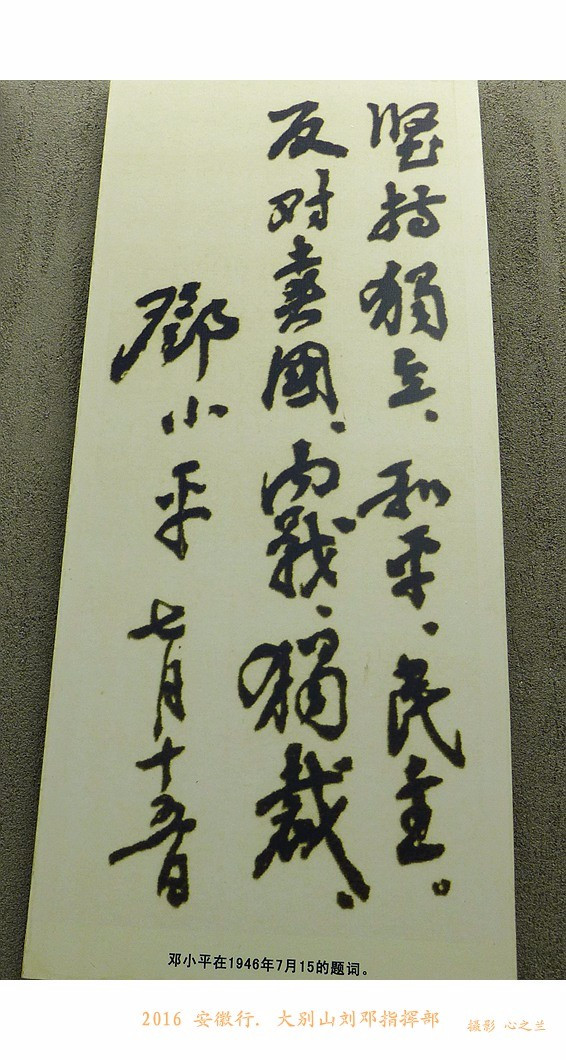 坚持獨立、和平、民主。
反对卖國、内戰、獨裁、
鄧小平 七月十五日
邓小平在1946年7月15的题词。
2016 安徽行. 大别山刘邓指挥部
摄影 心之兰